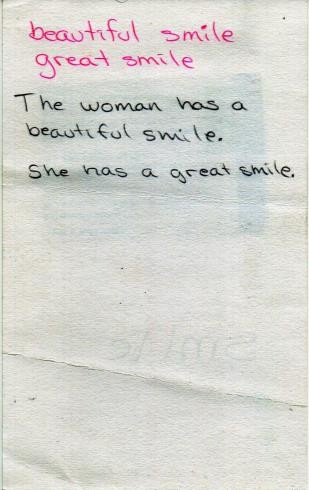 beautiful smile
great smile
The woman has a
beautiful smile.
She has a great smile.
smile